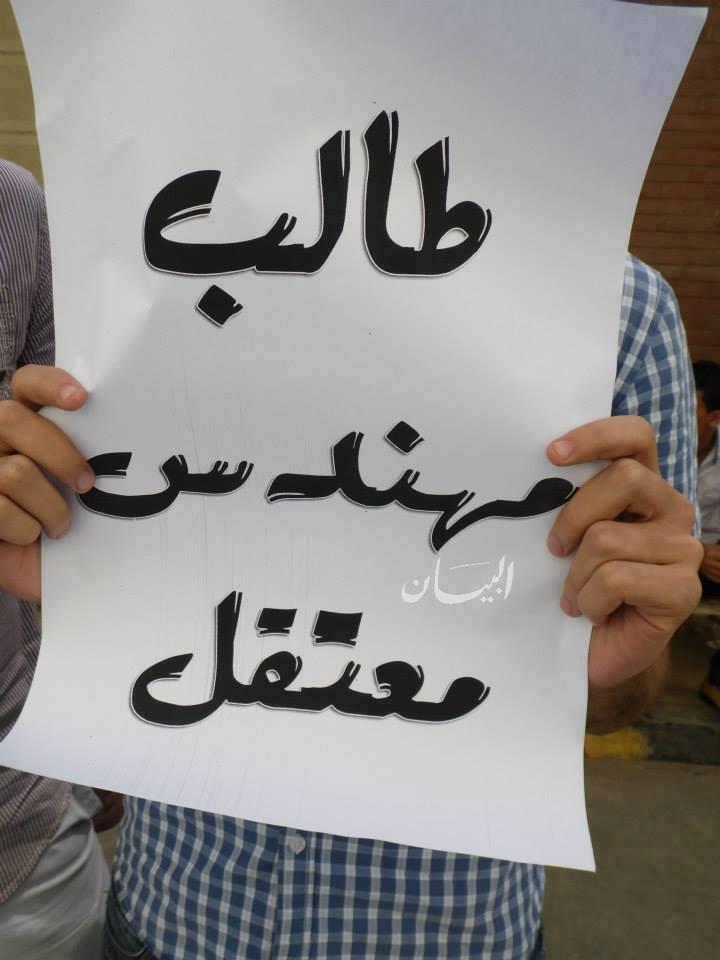 طالب
مهندس
البيان
معتقل